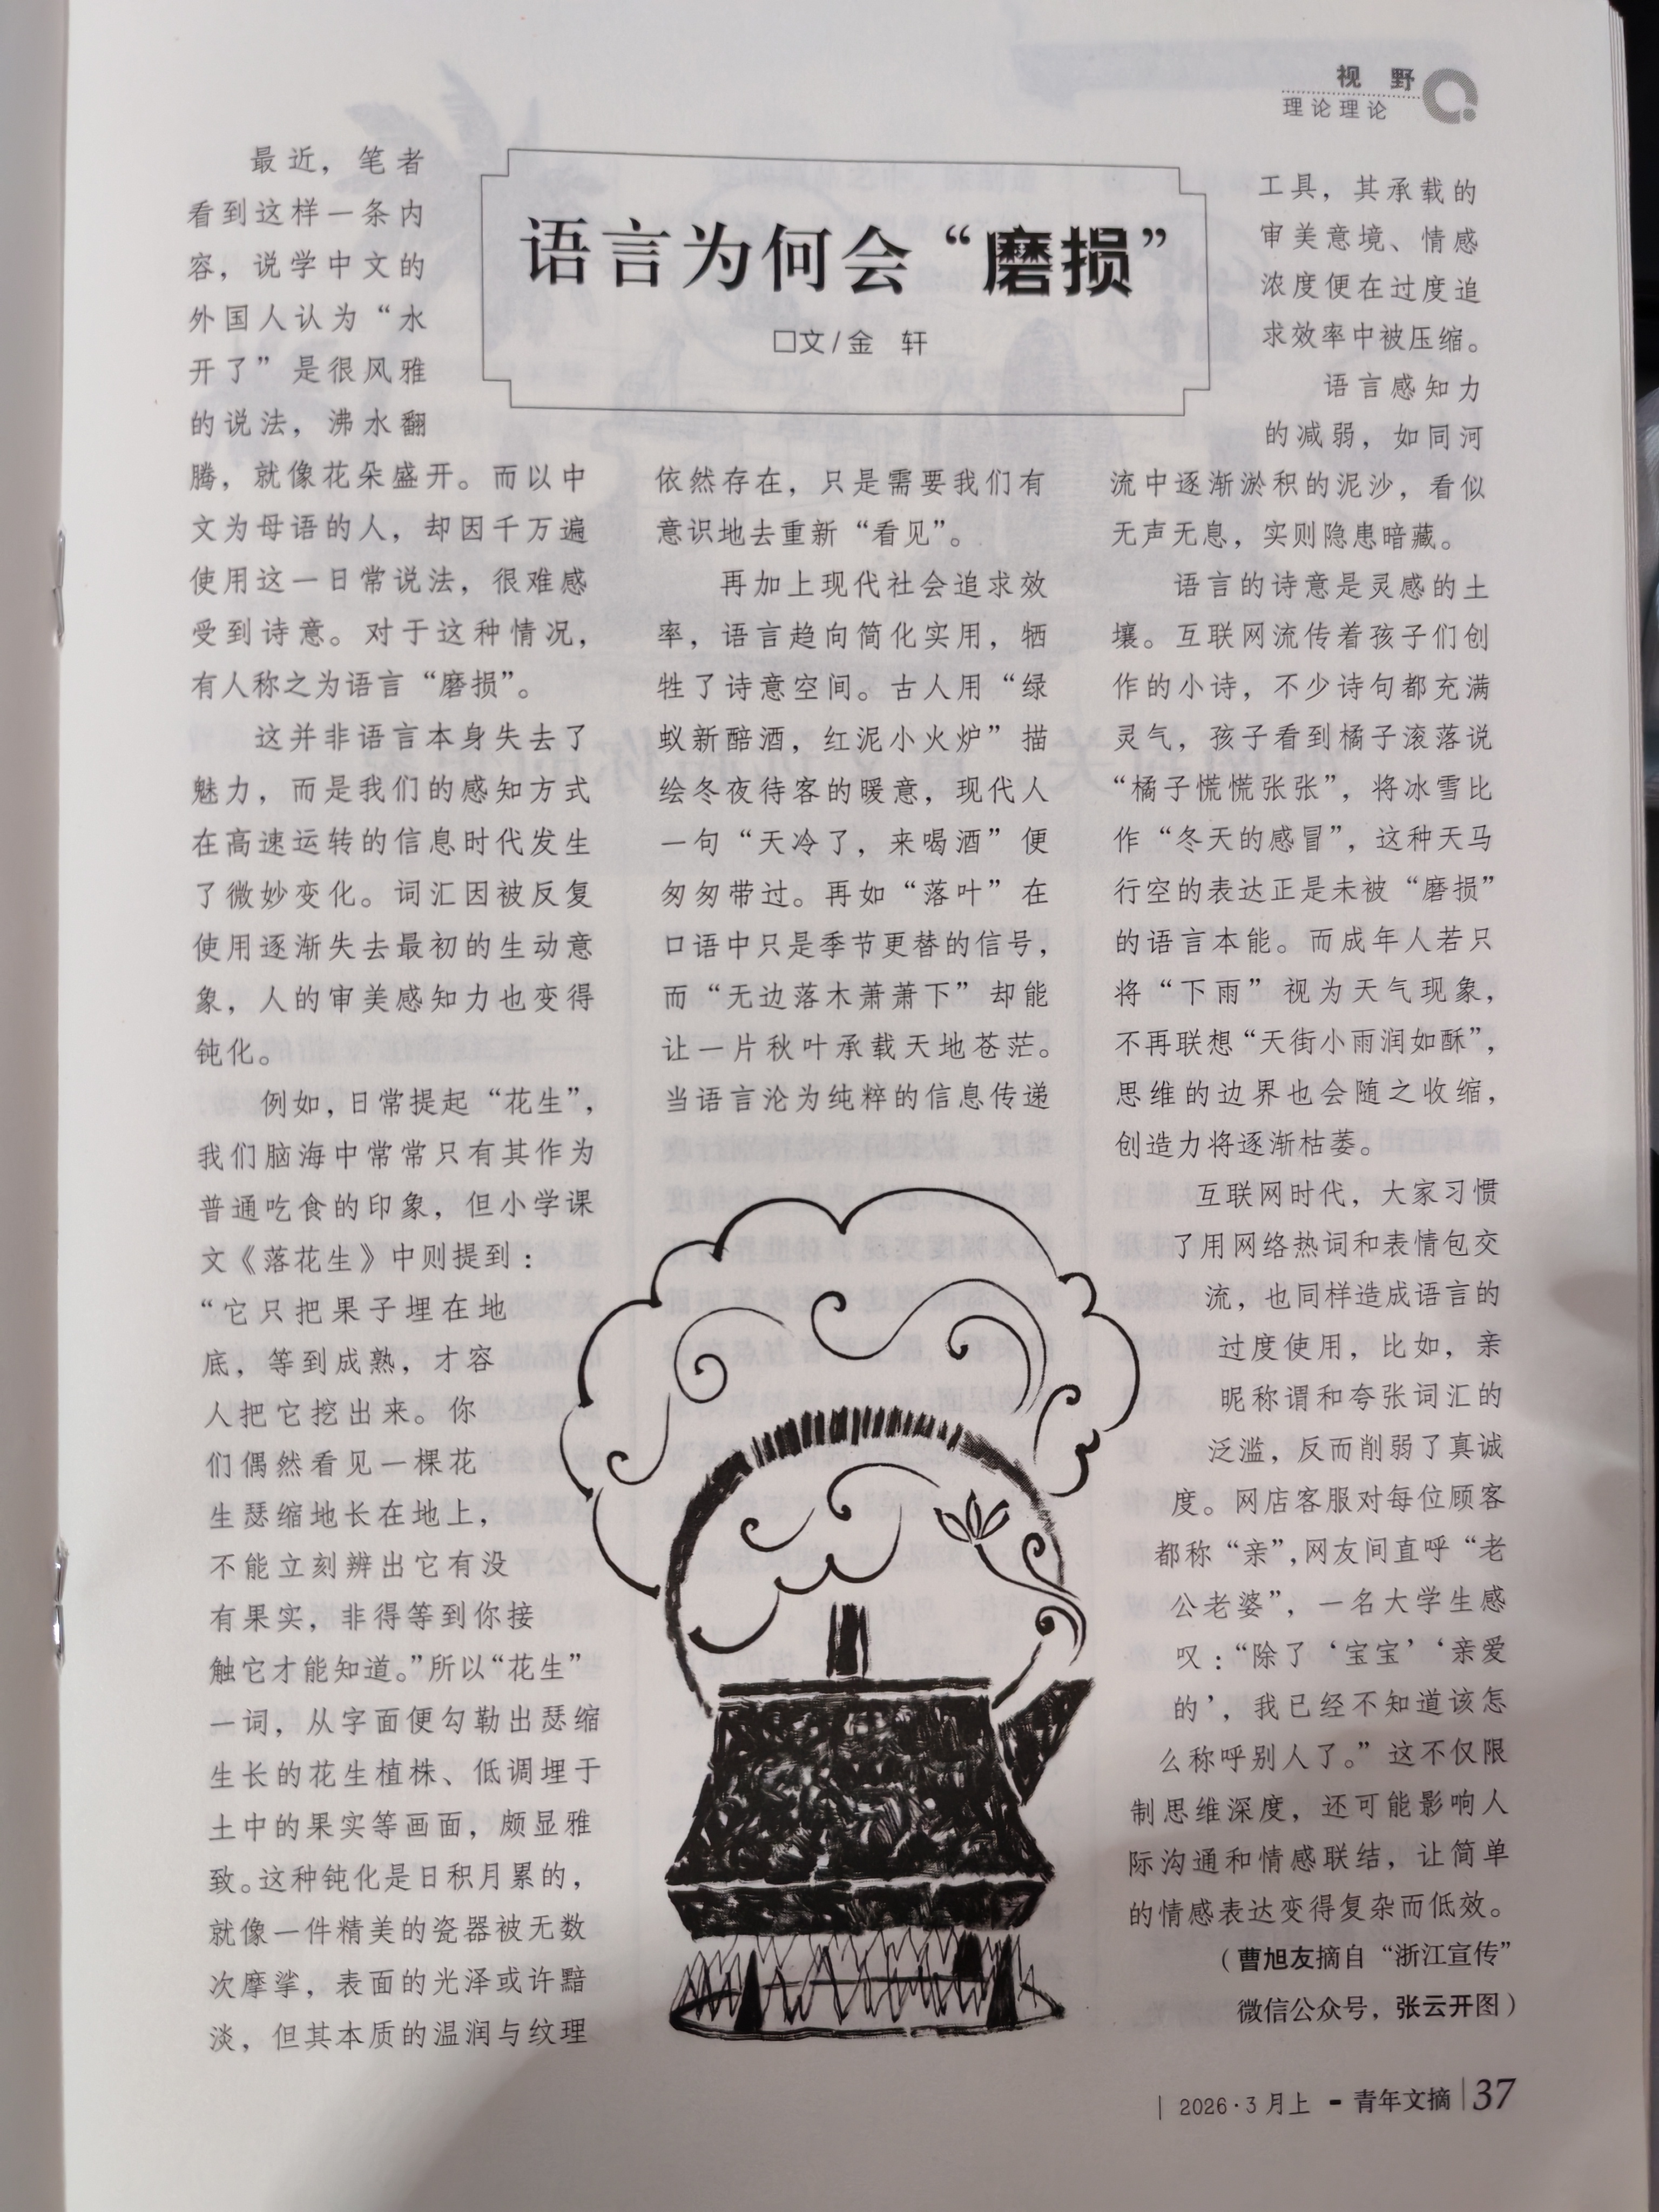 视 野
理论理论
语言为何会“磨损”
□文/金 轩
最近，笔者
看到这样一条内
容，说学中文的
外国人认为“水
开了”是很风雅
的说法，沸水翻
腾，就像花朵盛开。而以中
文为母语的人，却因千万遍
使用这一日常说法，很难感
受到诗意。对于这种情况，
有人称之为语言“磨损”。
这并非语言本身失去了
魅力，而是我们的感知方式
在高速运转的信息时代发生
了微妙变化。词汇因被反复
使用逐渐失去最初的生动意
象，人的审美感知力也变得
钝化。
例如，日常提起“花生”，
我们脑海中常常只有其作为
普通吃食的印象，但小学课
文《落花生》中则提到：
“它只把果子埋在地
底，等到成熟，才容
人把它挖出来。你
们偶然看见一棵花
生瑟缩地长在地上，
不能立刻辨出它有没
有果实，非得等到你接
触它才能知道。”所以“花生”
一词，从字面便勾勒出瑟缩
生长的花生植株、低调埋于
土中的果实等画面，颇显雅
致。这种钝化是日积月累的，
就像一件精美的瓷器被无数
次摩挲，表面的光泽或许黯
淡，但其本质的温润与纹理
依然存在，只是需要我们有
意识地去重新“看见”。
再加上现代社会追求效
率，语言趋向简化实用，牺
牲了诗意空间。古人用“绿
蚁新醅酒，红泥小火炉”描
绘冬夜待客的暖意，现代人
一句“天冷了，来喝酒”便
匆匆带过。再如“落叶”在
口语中只是季节更替的信号，
而“无边落木萧萧下”却能
让一片秋叶承载天地苍茫。
当语言沦为纯粹的信息传递
工具，其承载的
审美意境、情感
浓度便在过度追
求效率中被压缩。
语言感知力
的减弱，如同河
流中逐渐淤积的泥沙，看似
无声无息，实则隐患暗藏。
语言的诗意是灵感的土
壤。互联网流传着孩子们创
作的小诗，不少诗句都充满
灵气，孩子看到橘子滚落说
“橘子慌慌张张”，将冰雪比
作“冬天的感冒”，这种天马
行空的表达正是未被“磨损”
的语言本能。而成年人若只
将“下雨”视为天气现象，
不再联想“天街小雨润如酥”，
思维的边界也会随之收缩，
创造力将逐渐枯萎。
互联网时代，大家习惯
了用网络热词和表情包交
流，也同样造成语言的
过度使用，比如，亲
昵称谓和夸张词汇的
泛滥，反而削弱了真诚
度。网店客服对每位顾客
都称“亲”，网友间直呼“老
公老婆”，一名大学生感
叹：“除了‘宝宝’‘亲爱
的’，我已经不知道该怎
么称呼别人了。”这不仅限
制思维深度，还可能影响人
际沟通和情感联结，让简单
的情感表达变得复杂而低效。
（曹旭友摘自“浙江宣传”
微信公众号，张云开图）
2026·3月上 - 青年文摘 37